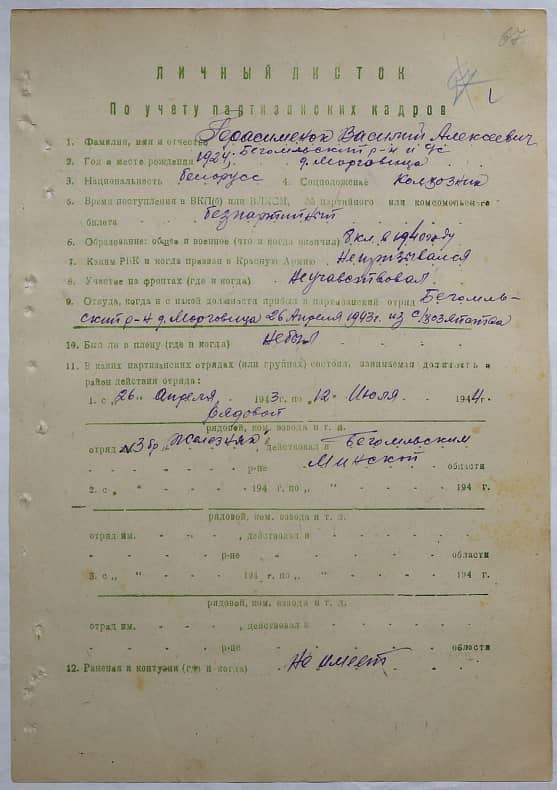 67
1
ЛИЧНЫЙ ЛИСТОК
По учету партизанских кадров
1. Фамилия, имя и отчество Герасименок Василий Алексеевич
2. Год и место рождения 1924. Бегомльский р-н и с/с
д. Морговица
3. Национальность белорусс 4. Соцположение Колхозник
5. Время поступления в ВКП(б) или ВЛКСМ, № партийного или комсомольского
билета беспартийный
6. Образование: общее и военное (что и когда окончил) 8 кл. в 1940 году
7. Каким РВК и когда призван в Красную Армию Непризывался
8. Участие на фронтах (где и когда) Неучавствовал
9. Откуда, когда и с какой должности прибыл в партизанский отряд Бегомль-
ский р-н д. Морговица 26 Апреля 1943 г. из с/хозяйства
10. Был ли в плену (где и когда) Небыл
11. В каких партизанских отрядах (или группах) состоял, занимаемая должность и
район действия отряда:
1. с „26„ Апреля 1943 г. по „12„ Июля 1944 г.
рядовой
рядовой, ком. взвода и т. д.
отряд №3 бр „Железняк", действовал в Бегомльским
р-не Минской области
2. с „ “ 194 г. по „ “ 194 г.
рядовой, ком. взвода и т. д.
отряд им. , действовал в
р-не области
3. с „ “ 194 г. по „ “ 194 г.
рядовой, ком. взвода и т. д.
отряд им. , действовал в
р-не области
12. Ранения и контузии (где и когда) Не имеет